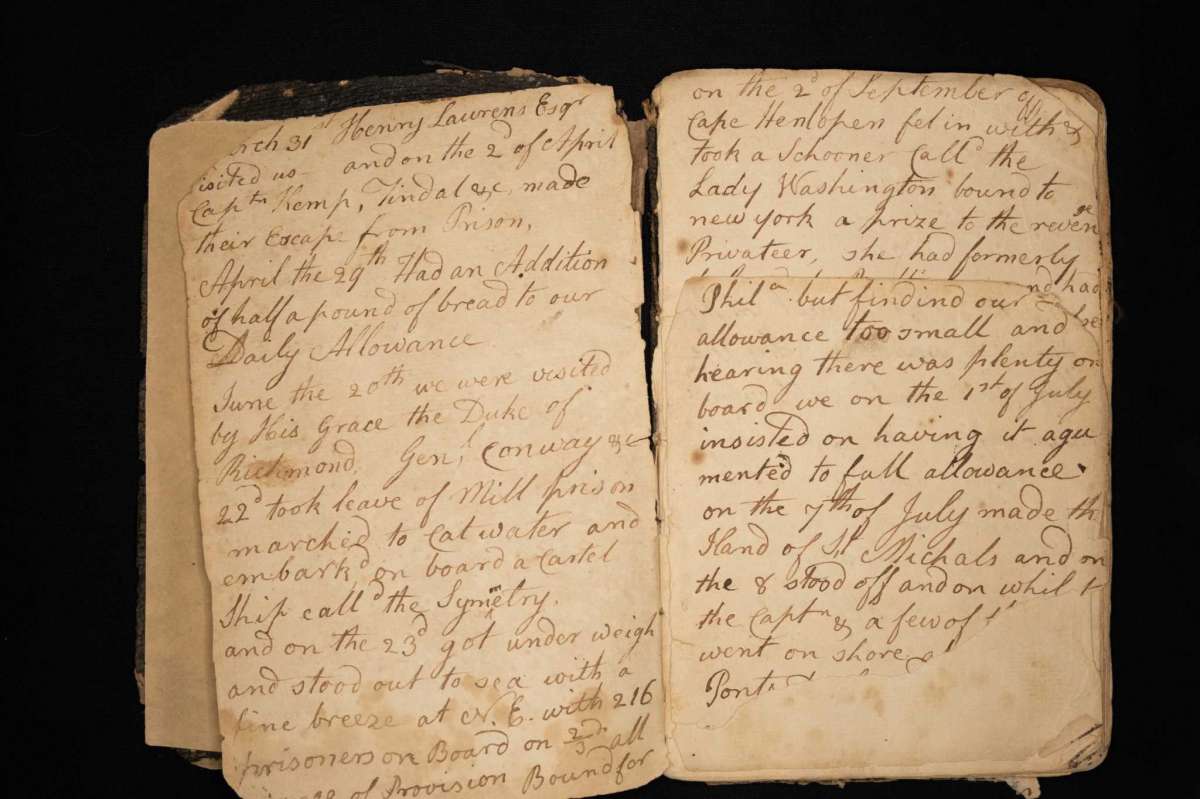 rch 31st Henry Laurens Esqr
isited us - and on the 2d of April
Captn Kemp, Tindal &c, made
their Escape from Prison,
April the 29th Had an Addition
of half a pound of bread to our
Daily Allowance
June the 20th we were visited
by His Grace the Duke of
Richmond, Genl. Conway &c
22d took leave of Mill prison
marched to Catwater and
embark'd on board a Cartel
Ship call'd the Symmetry.
and on the 23d got under weigh
and stood out to sea with a
fine breeze at N. E. with 216
prisoners on Board on 2/3ds all
of Provision Bound for
on the 2d of September off
Cape Henlopen fel in with &
took a Schooner Calld the
Lady Washington bound to
new york a prize to the revenge
Privateer, she had formerly
nd had
Phila. but findind our
allowance too small and
hearing there was plenty on
board we on the 1st of July
insisted on having it agu
mented to full allowance.
on the 7th of July made th
Iland of St Michals and on
the 8 stood off and on whilst
the Captn & a few of
went on shore
Pont